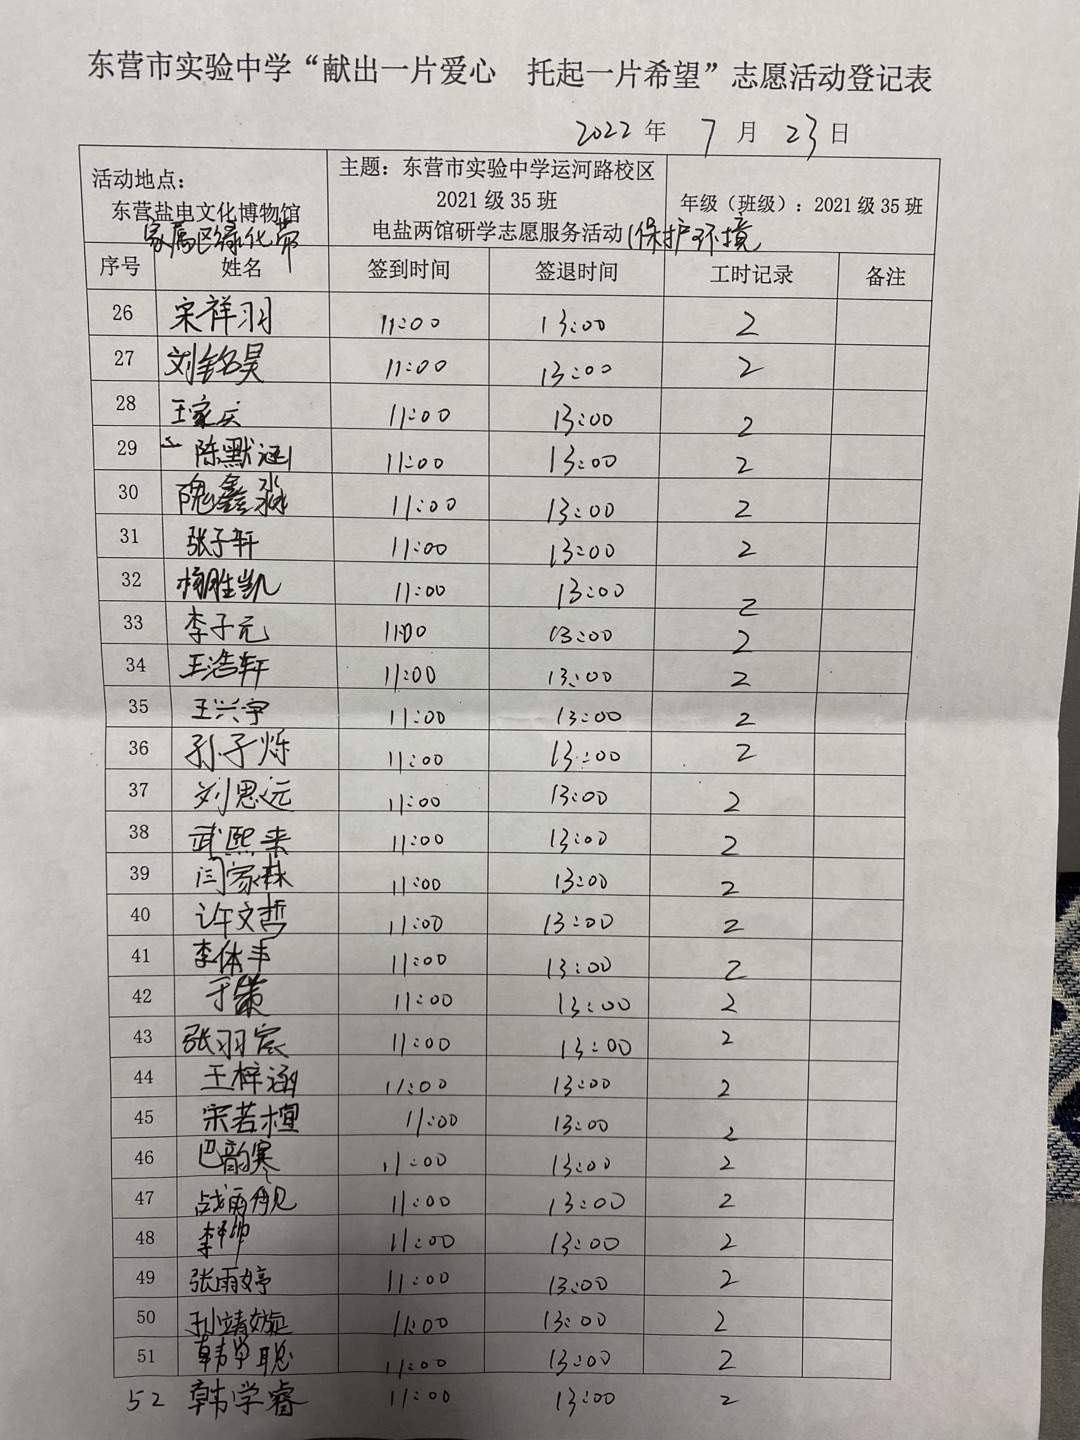 东营市实验中学“献出一片爱心 托起一片希望”志愿活动登记表
2022 年 7 月 23 日
活动地点：
东营盐电文化博物馆
家属区绿化带
主题：东营市实验中学运河路校区
2021 级 35 班
电盐两馆研学志愿服务活动 (保护环境
年级（班级）：2021 级 35 班
序号 姓名 签到时间 签退时间 工时记录 备注
26 宋祥羽 11:00 13:00 2
27 刘铭昊 11:00 13:00 2
28 王家庆 11:00 13:00 2
29 陈默涵 11:00 13:00 2
30 隗鑫淼 11:00 13:00 2
31 张子轩 11:00 13:00 2
32 胜凯 11:00 13:00 2
33 李子元 11:00 13:00 2
34 王浩轩 11:00 13:00 2
35 王兴宇 11:00 13:00 2
36 孙子烁 11:00 13:00 2
37 刘思远 11:00 13:00 2
38 武熙来 11:00 13:00 2
39 闫家林 11:00 13:00 2
40 许文哲 11:00 13:00 2
41 李体丰 11:00 13:00 2
42 于策 11:00 13:00 2
43 张羽宸 11:00 13:00 2
44 王梓涵 11:00 13:00 2
45 宋若楦 11:00 13:00 2
46 巴韵寒 11:00 13:00 2
47 战雨 11:00 13:00 2
48 李帅 11:00 13:00 2
49 张雨婷 11:00 13:00 2
50 孙靖旋 11:00 13:00 2
51 韩学聪 11:00 13:00 2
52 韩学睿 11:00 13:00 2